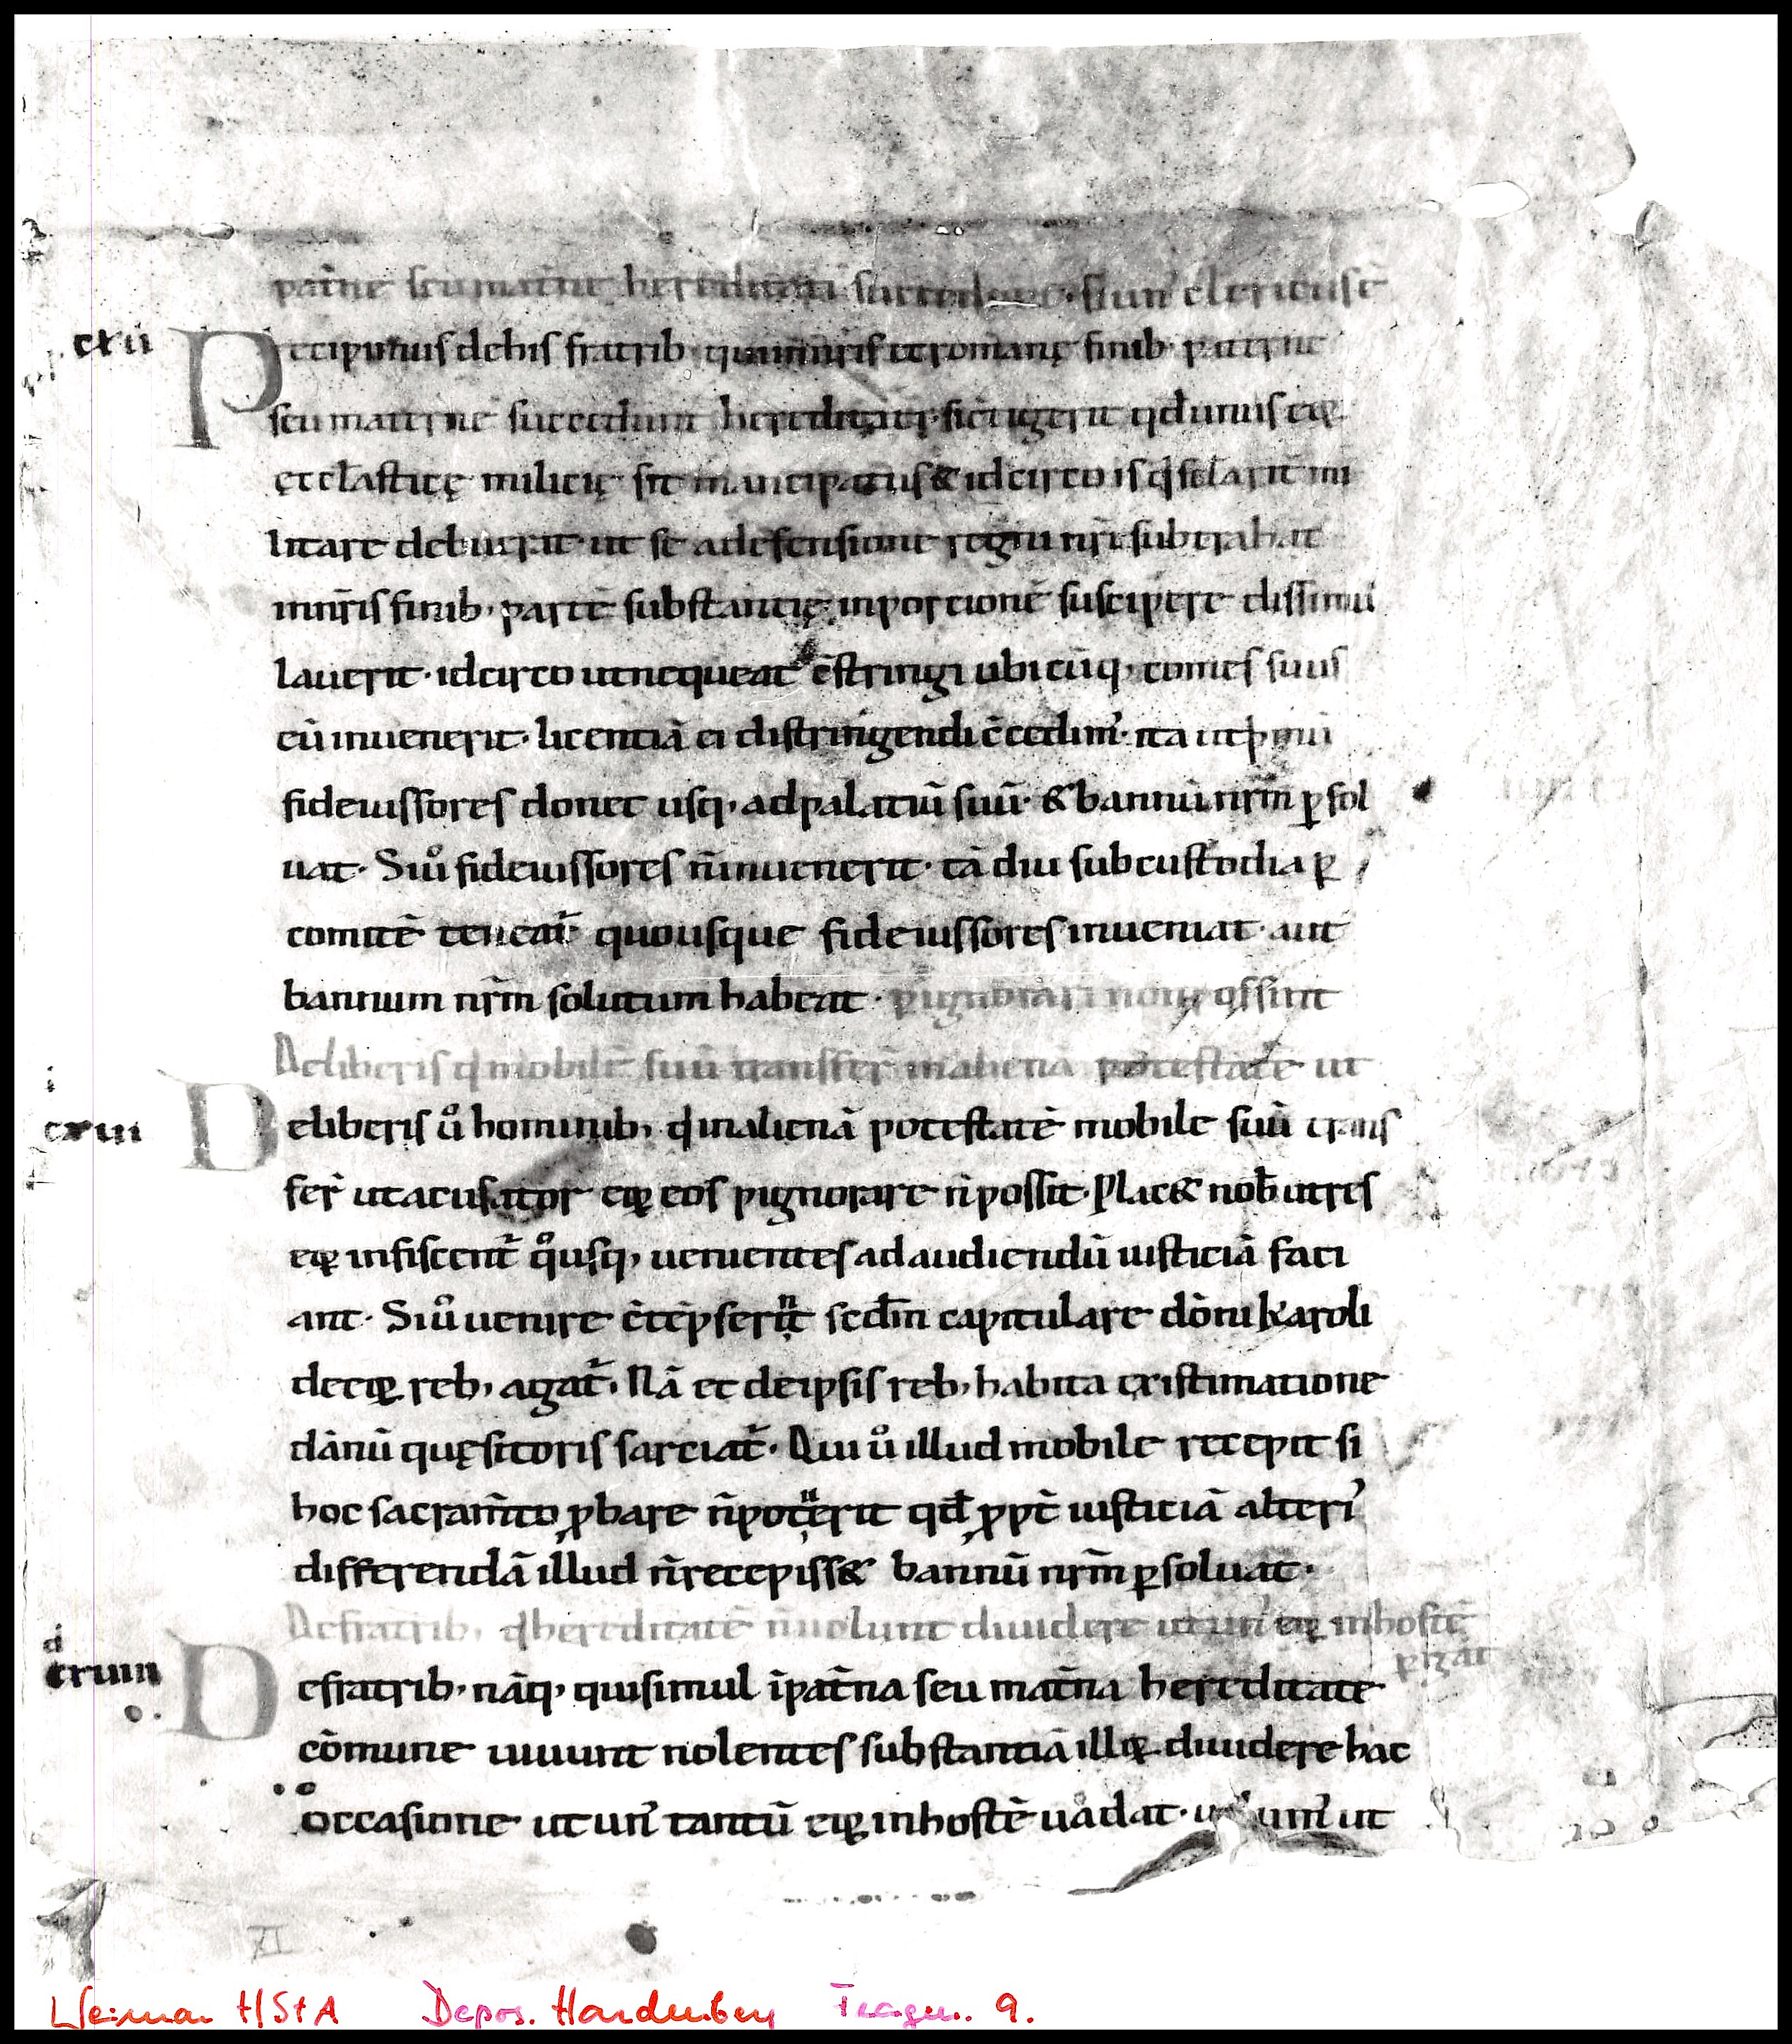 pat̄ne seu mat̄ne hereditati succedunt· si un᾽ clericus ē
cxii Precipimus de his fratrib· qui in nr̄is et romanę finib· paterne
seu materne succedunt hereditati· si c̄tigerit qd̄ unus eoꝝ
ęccl̄asticę milicię sit mancipatus & idcirco is q̄ sc̄larit̄ mi
litare debuerit· ut se a defensione regni nr̄i subtrahat
in nr̄is finib· partē substantię in portionē suscipere dissimu
lauerit· idcirco ut nequeat c̄stringi ubicūq, comes suus
eū inuenerit· licentiā ei distringendi c̄cedim᾽· ita ut p
fideiussores donec usq, ad palatiū suū· & bannū nr̄m ꝑsol
uat· Si ů fideiussores n̄ inuenerit· tā diu sub custodia ꝑ
comitē teneat̄ quousque fideiussores inueniat· aut
bannum nr̄m solutum habeat· pignorari non possint
De liberis q̄ mobilē suū transfer̄ in aliena potestatē ut
cxiii De liberis ů hominib, q̄ in alienā potestatē mobile suū trans
fer̄ ut acusator eoꝝ eos pignorare n̄ possit· Plac& nob̄ ut res
eoꝝ infiscent̄ q̊usq, uenientes ad audiendū iusticiā faci
ant· Si ů uenire c̄tēpserīt scd̄m capitulare dōni karoli
de eoꝝ reb, agat̄· Nā et de ipsis reb, habita existimatione
dānū quęsitoris sarciat̄· Qui ů illud mobile recepit si
hoc sacram̄to ꝓbare n̄ potuerit qd̄ ꝓpt̄ iusticiā alteri᾽
differendā illud n̄ recepiss& bannū nr̄m ꝑsoluat·
De fratrib, q̄ hereditatē n̄ uolunt diuidere ut un᾽ eoꝝ in hostē
ꝑgat
cxiiii De fratrib· nāq, qui simul ī pat̄na seu mat̄na hereditate
cōmune uiuunt nolentes substantiā illoꝝ diuidere hac
occasione ut un᾽ tantū eoꝝ in hostē uadat· um᾽ ut
XI
Weimar HStA Depos. Hardenberg Fragm. 9.